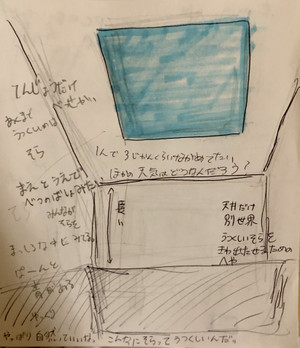 てんじょうだけ
べっせかい
あくまで
うつくしいのは
そら
1人で3じかんくらいながめてたい
ほかの天気はどうなんだろう？
まえとうえで
べつのばしょみたい
みんなが
そらを
まっしろな
長い
天井だけ
別世界
うつくしいそらを
きわ立たせるための
へや
やっぱり自然っていいな。
こんなにそらってうつくしいんだっ